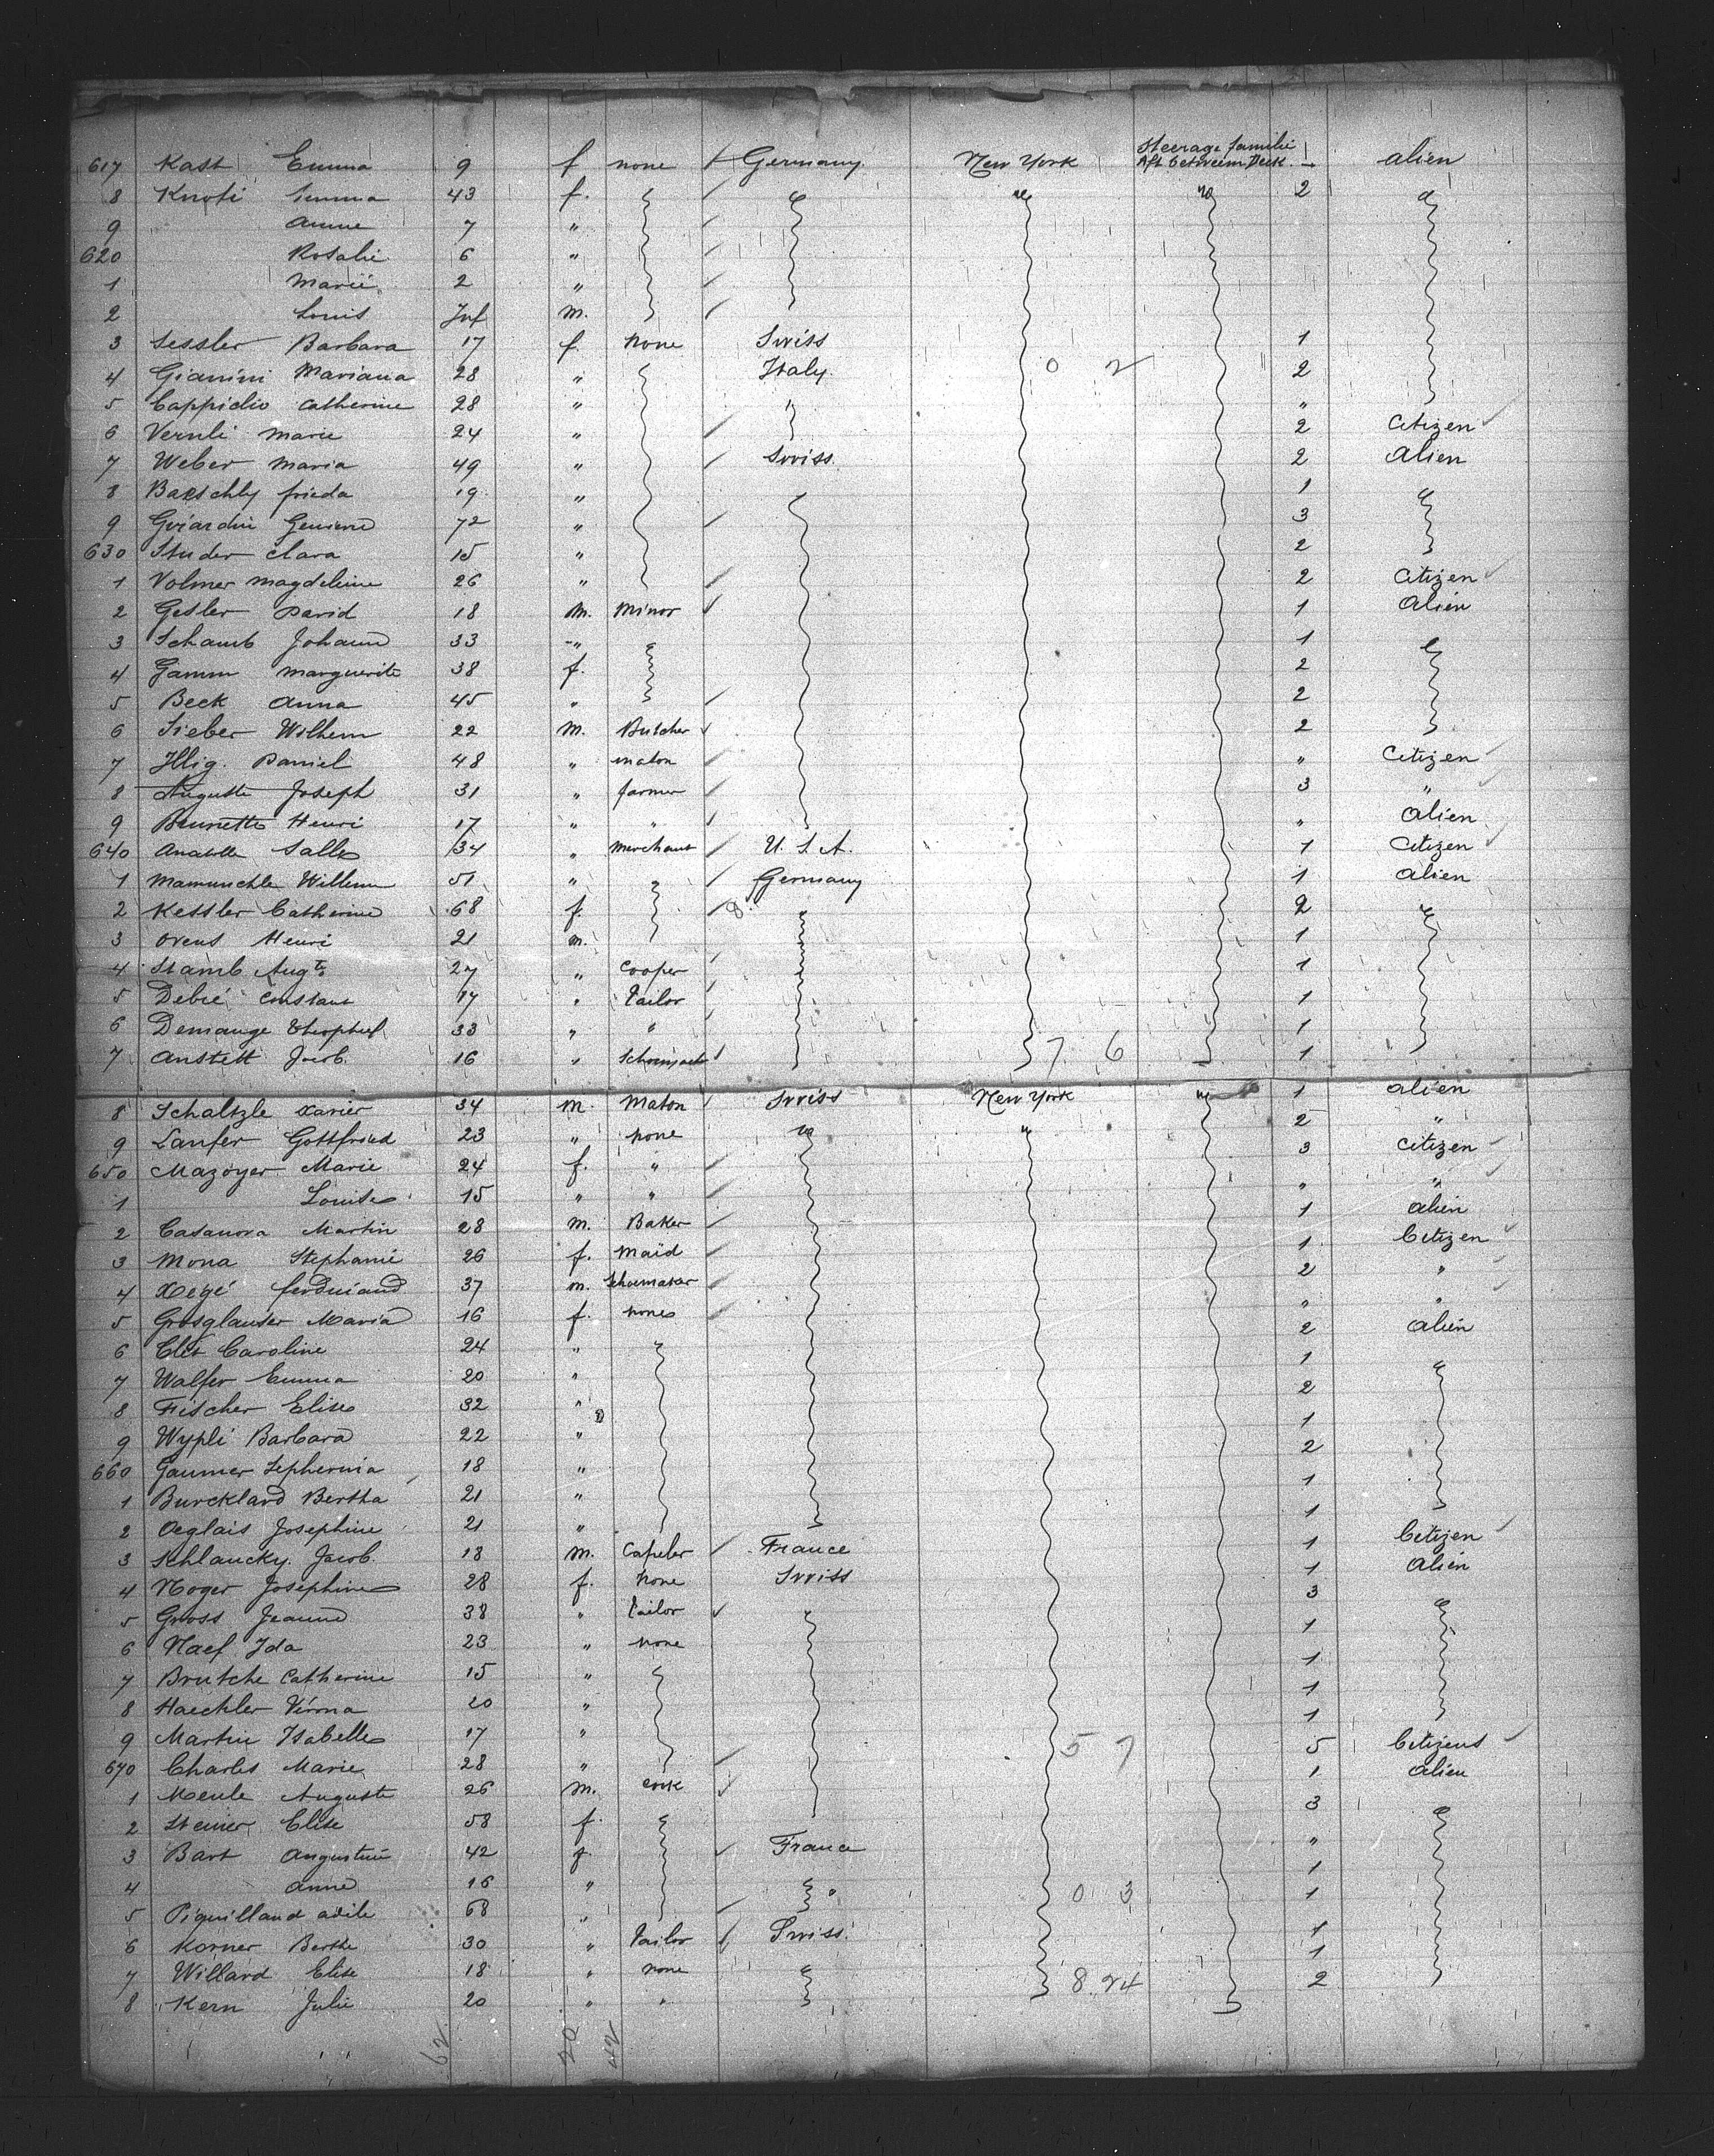 617 Kast Emma 9 f none Germany New York Steerage familie Aft between Deck 1 alien
8 Knoti Emma 43 f. 2
9 Anna 7 "
620 Rosalie 6 "
1 Marie 2 "
2 Louis Inf m.
3 Sessler Barbara 17 f. none Swiss 1
4 Gianini Mariana 28 " Italy. 0 2 2
5 Cappidio Catherine 28 " "
6 Vernli Marie 24 " 2 Citizen
7 Weber Maria 49 " Swiss. 2 Alien
8 Baeschly frieda 19 " 1
9 Girardin 72 " 3
630 Studer Clara 15 " 2
1 Volmer Magdeleine 26 " 2 Citizen
2 Gesler David 18 m. Minor 1 Alien
3 Schaub Johann 33 " 1
4 Gamm Marguerite 38 f. 2
5 Beck Anna 45 " 2
6 Sieber Wilhem 22 m. Butcher 2
7 Illig. Daniel 48 " maton " Citizen
8 Auguste Joseph 31 " farmer 3 "
9 Brunette Henri 17 " " " Alien
640 Anatole Salles 34 " Merchant U. S. A. 1 Citizen
1 Willem 51 " Germany 1 Alien
2 Kessler Catherine 68 f. 2
3 Ovens Henri 21 m. 1
4 Stamb Augte 27 " Cooper 1
5 Debié Constant 17 " Tailor 1
6 Demange Theophiel 33 " " 1
7 Anstett Jacob. 16 " 7 6 1
8 Schaltzle Xavier 34 m. Maton Swiss New York 1 alien
9 Laufer Gottfried 23 " none 2 "
650 Mazoyer Marie 24 f. " 3 Citizen
1 Louise 15 " " " "
2 Casanova Martin 28 m. Baker 1 alien
3 Mona Stephanie 26 f. Maid 1 Citizen
4 ferdinand 37 m. Schoemaker 2 "
5 Grosglauser Maria 16 f. none " "
6 Caroline 24 " 2 Alien
7 Walfer Emma 20 " 1
8 Fischer Elise 32 " 2
9 Wypli Barbara 22 " 1
660 Gaumer 18 " 2
1 Burcklard Bertha 21 " 1
2 Oeglais Josephine 21 " 1
3 Schlaucky. Jacob. 18 m. France 1 Citizen
4 Moger Josephine 28 f. none Swiss 1 Alien
5 Gross Jeanne 38 " Tailor 3
6 Naef Ida 23 " none 1
7 Brutche Catherine 15 " 1
8 Haechler Virma 20 " 1
9 Martin Isabelle 17 " 5 7 1
670 Charles Marie 28 " 5 Citizens
1 Meule Auguste 26 m. cook 1 Alien
2 Steiner Elise 58 f. 3
3 Bart Augustine 42 f. France "
4 Anne 16 " " 0 3 1
5 Piquilland adile 68 " 1
6 Korner Berthe 30 " Tailor Swiss. 1
7 Willard Elise 18 " none 1
8 Kern Julie 20 " " 8 24 2
62 20 42